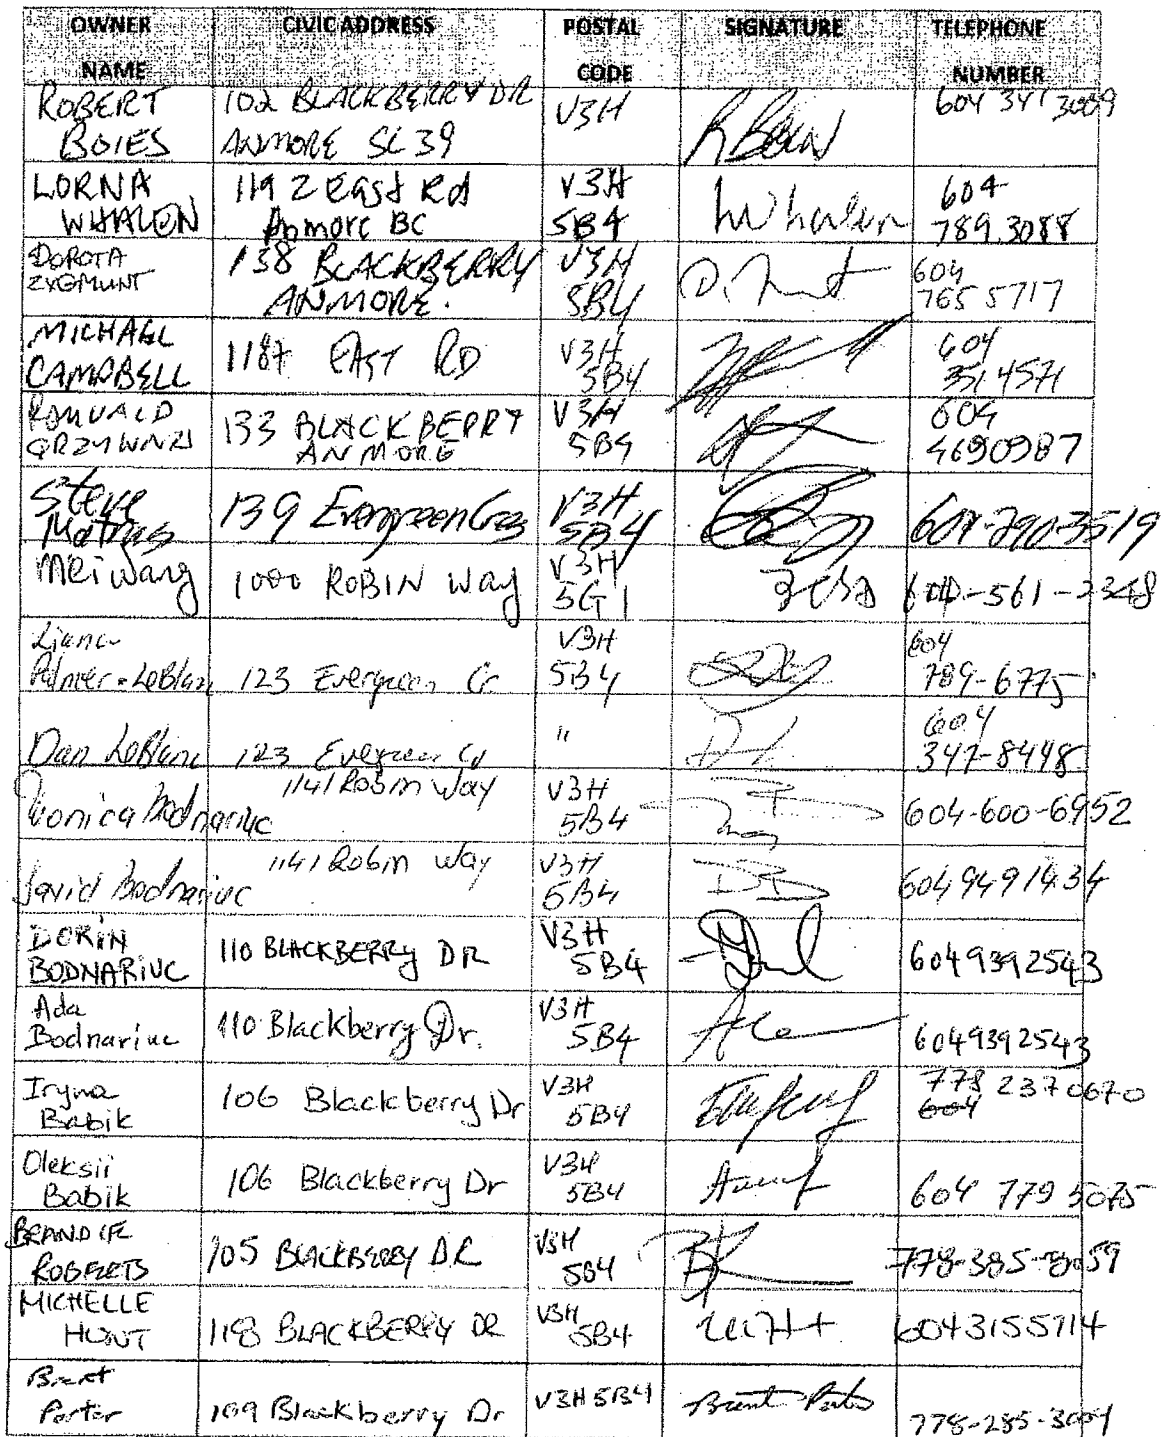 OWNER NAME CIVIC ADDRESS POSTAL CODE SIGNATURE TELEPHONE NUMBER
ROBERT BOIES 102 BLACKBERRY DR ANMORE V3H 604 341 3009
LORNA WHALEN 1192 East Rd Anmore BC V3H 5B4 LWhalen 604 789.3088
DOROTA ZYGMUNT 138 BLACKBERRY ANMORE. V3H 5B4 604 765 5717
MICHAEL CAMPBELL 1187 EAST RD V3H 5B4 604
ROMUALD 133 BLACKBERRY ANMORE V3H 5B4 604 4690987
Steve 139 Evergreen Cres V3H 5B4
Mei Wang 1000 ROBIN Way V3H 5G1 561-2348
Palmer-LeBlanc 123 Evergreen Cr V3H 5B4 604 789-6775
Dan LeBlanc 123 Evergreen Cr " 604 347-8448
Bodnariuc 1141 Robin Way V3H 5B4 604-600-6952
David Bodnariuc 1141 Robin Way V3H 5B4 604 949 1434
DORIN BODNARIUC 110 BLACKBERRY DR V3H 5B4 6049392543
Ada Bodnariuc 110 Blackberry Dr. V3H 5B4 6049392543
Iryna Babik 106 Blackberry Dr V3H 5B4 778 237 0670 604
Oleksii Babik 106 Blackberry Dr V3H 5B4 604 779 5075
BRANDIE ROBERTS 105 BLACKBERRY DR V3H 5B4 778-385-
MICHELLE HUNT 118 BLACKBERRY DR V3H 5B4 6043155714
Brent Porter 109 Blackberry Dr V3H 5B4 Brent Porter 778-285-